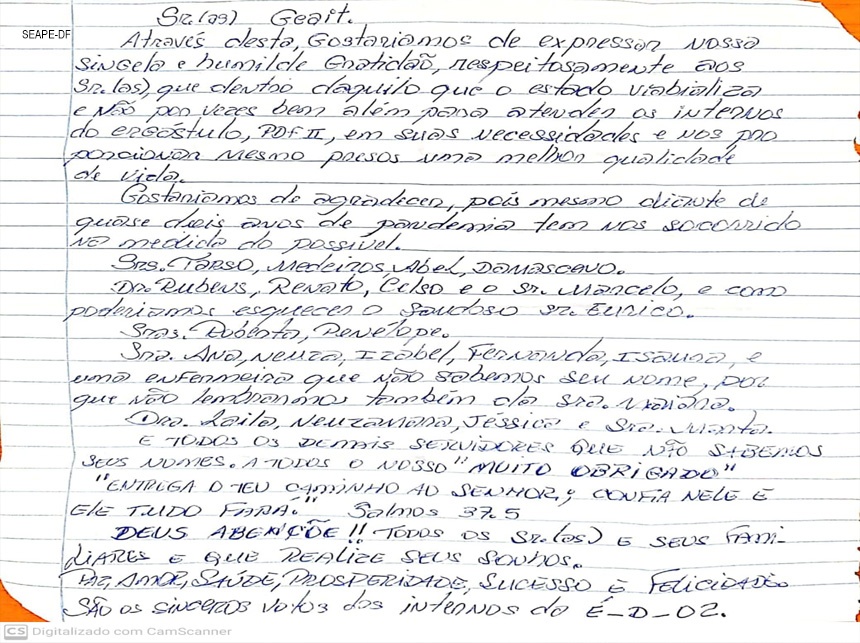 Sr.(as) Geait.
SEAPE-DF
Através desta, Gostariamos de expressar nossa
singela e humilde Gratidão, respeitosamente aos
Sr.(as), que dentro daquilo que o estado viabializa
e não por vezes bem além para atender os internos
do ergástulo, PDF II, em suas necessidades e nos pro
porcionar mesmo presos uma melhor qualidade
de vida.
Gostariamos de agradecer, pois mesmo diante de
quase dois anos de pandemia tem nos socorrido
na medida do possível.
Srs. Tarso, Medeiros, Abel, Damasceno.
Dr. Rubens, Renato, Celso e o Sr. Marcelo, e como
poderiamos esquecer o Saudoso Sr. Eurico.
Sras. Roberta, Penélope.
Sra. Ana, Neuza, Izabel, Fernanda, Isaura, e
uma enfermeira que não sabemos seu nome, por
que não lembrarmos também da Sra. Mariana.
Dra. Laila, Neuzamara, Jéssica e Sra. Marta.
E TODOS OS DEMAIS SERVIDORES QUE NÃO SABEMOS
SEUS NOMES. A TODOS O NOSSO "MUITO OBRIGADO"
"ENTREGA O TEU CAMINHO AO SENHOR, CONFIA NELE E
ELE TUDO FARÁ." Salmos 37.5
DEUS ABENÇÕE!! TODOS OS Sr.(as) E SEUS FAMI-
LIARES E QUE REALIZE SEUS SONHOS.
PAZ, AMOR, SAÚDE, PROSPERIDADE, SUCESSO E FELICIDADE
SÃO OS SINCEROS votos dos internos da É-D-02.
CS Digitalizado com CamScanner